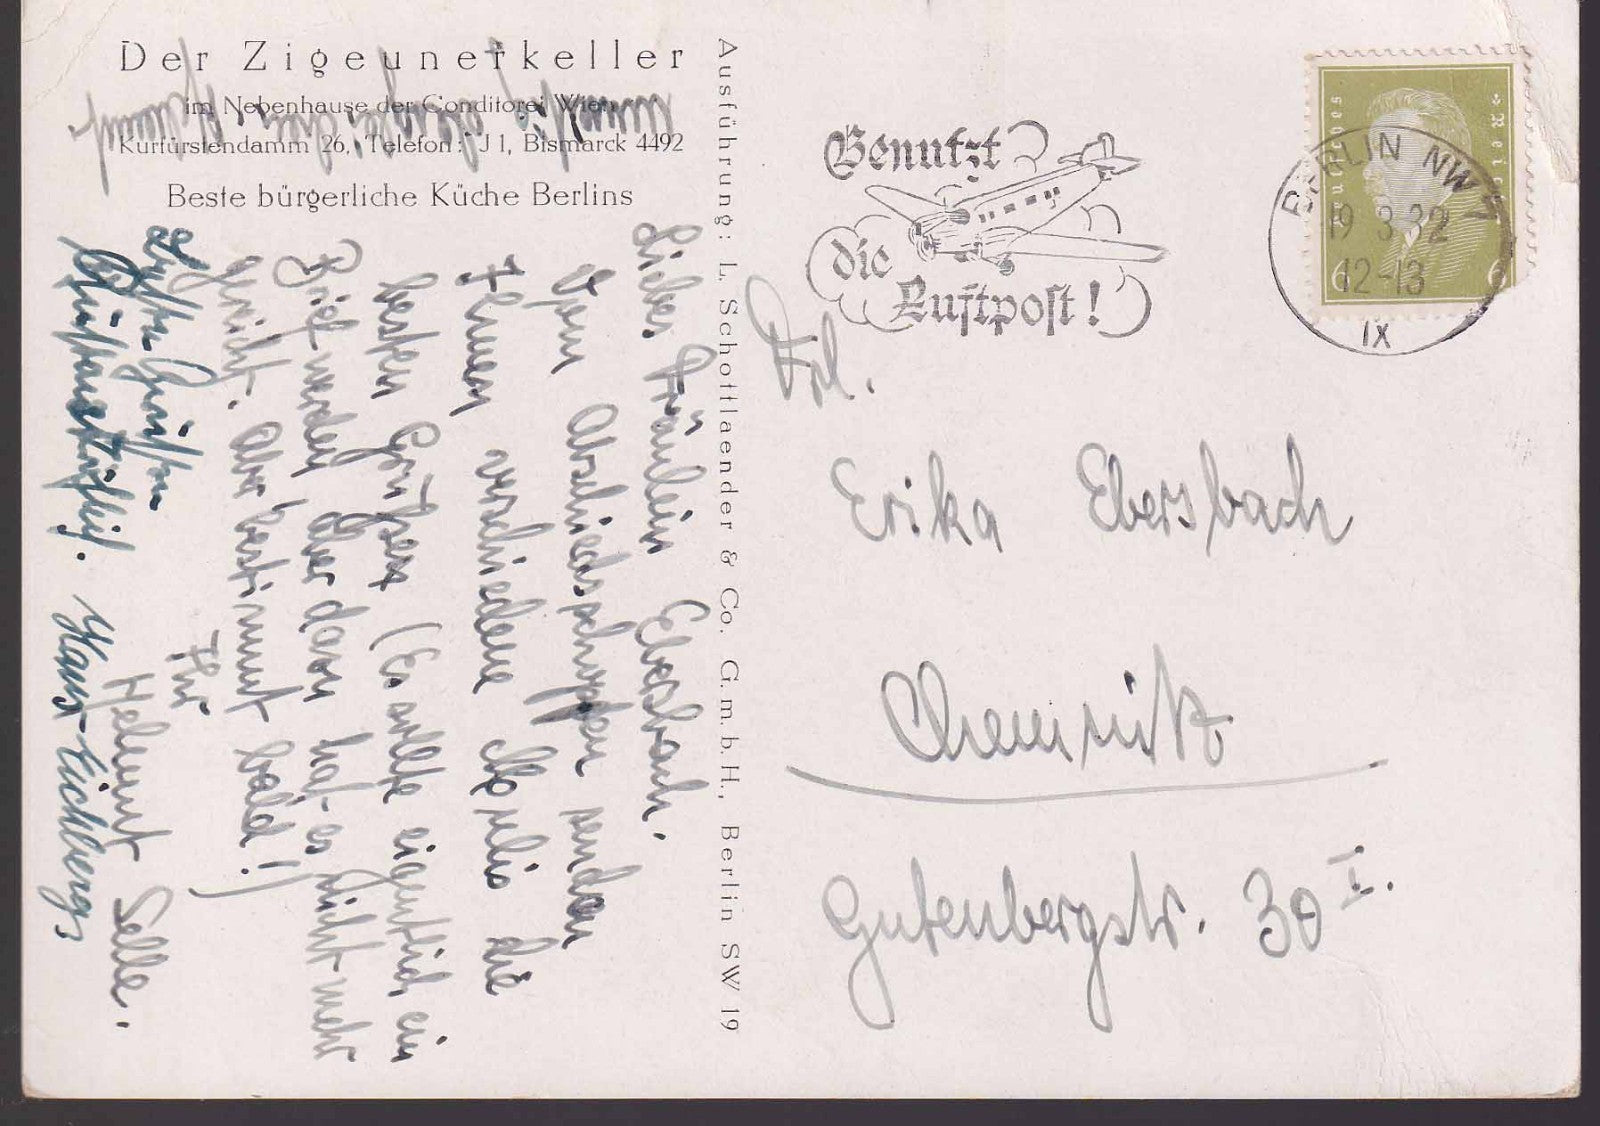 Der Zigeunerkeller
im Nebenhause der Conditorei Wien
Kurfürstendamm 26, Telefon: J 1, Bismarck 4492
Beste bürgerliche Küche Berlins
Liebes Fräulein Ebersbach.
Vom Abschiedsschoppen senden
Ihnen verschiedene die
besten Grüße (Es sollte eigentlich ein
Brief werden aber dazu hat es nicht mehr
gereicht. Aber bestimmt bald!)
Ihr
Helmut Selle.
Hans Eichberg
Ausführung: L. Schottlaender & Co. G.m.b.H., Berlin SW 19
Benutzt
die
Luftpost!
Deutsches Reich
6 6
BERLIN NW 7
19 3.32
12-13
IX
Frl.
Erika Ebersbach
Chemnitz
Gutenbergstr. 30 I.